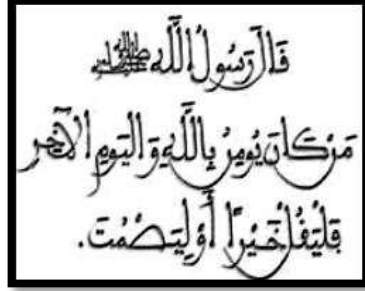 قَالَ رَسُولُ اللَّهِ ﷺ
مَن كَانَ يُومِنُ بِاللَّهِ وَالْيَوْمِ الْآخِرِ
فَلْيَقُلْ خَيْرًا أَوْ لِيَصْمُتْ.